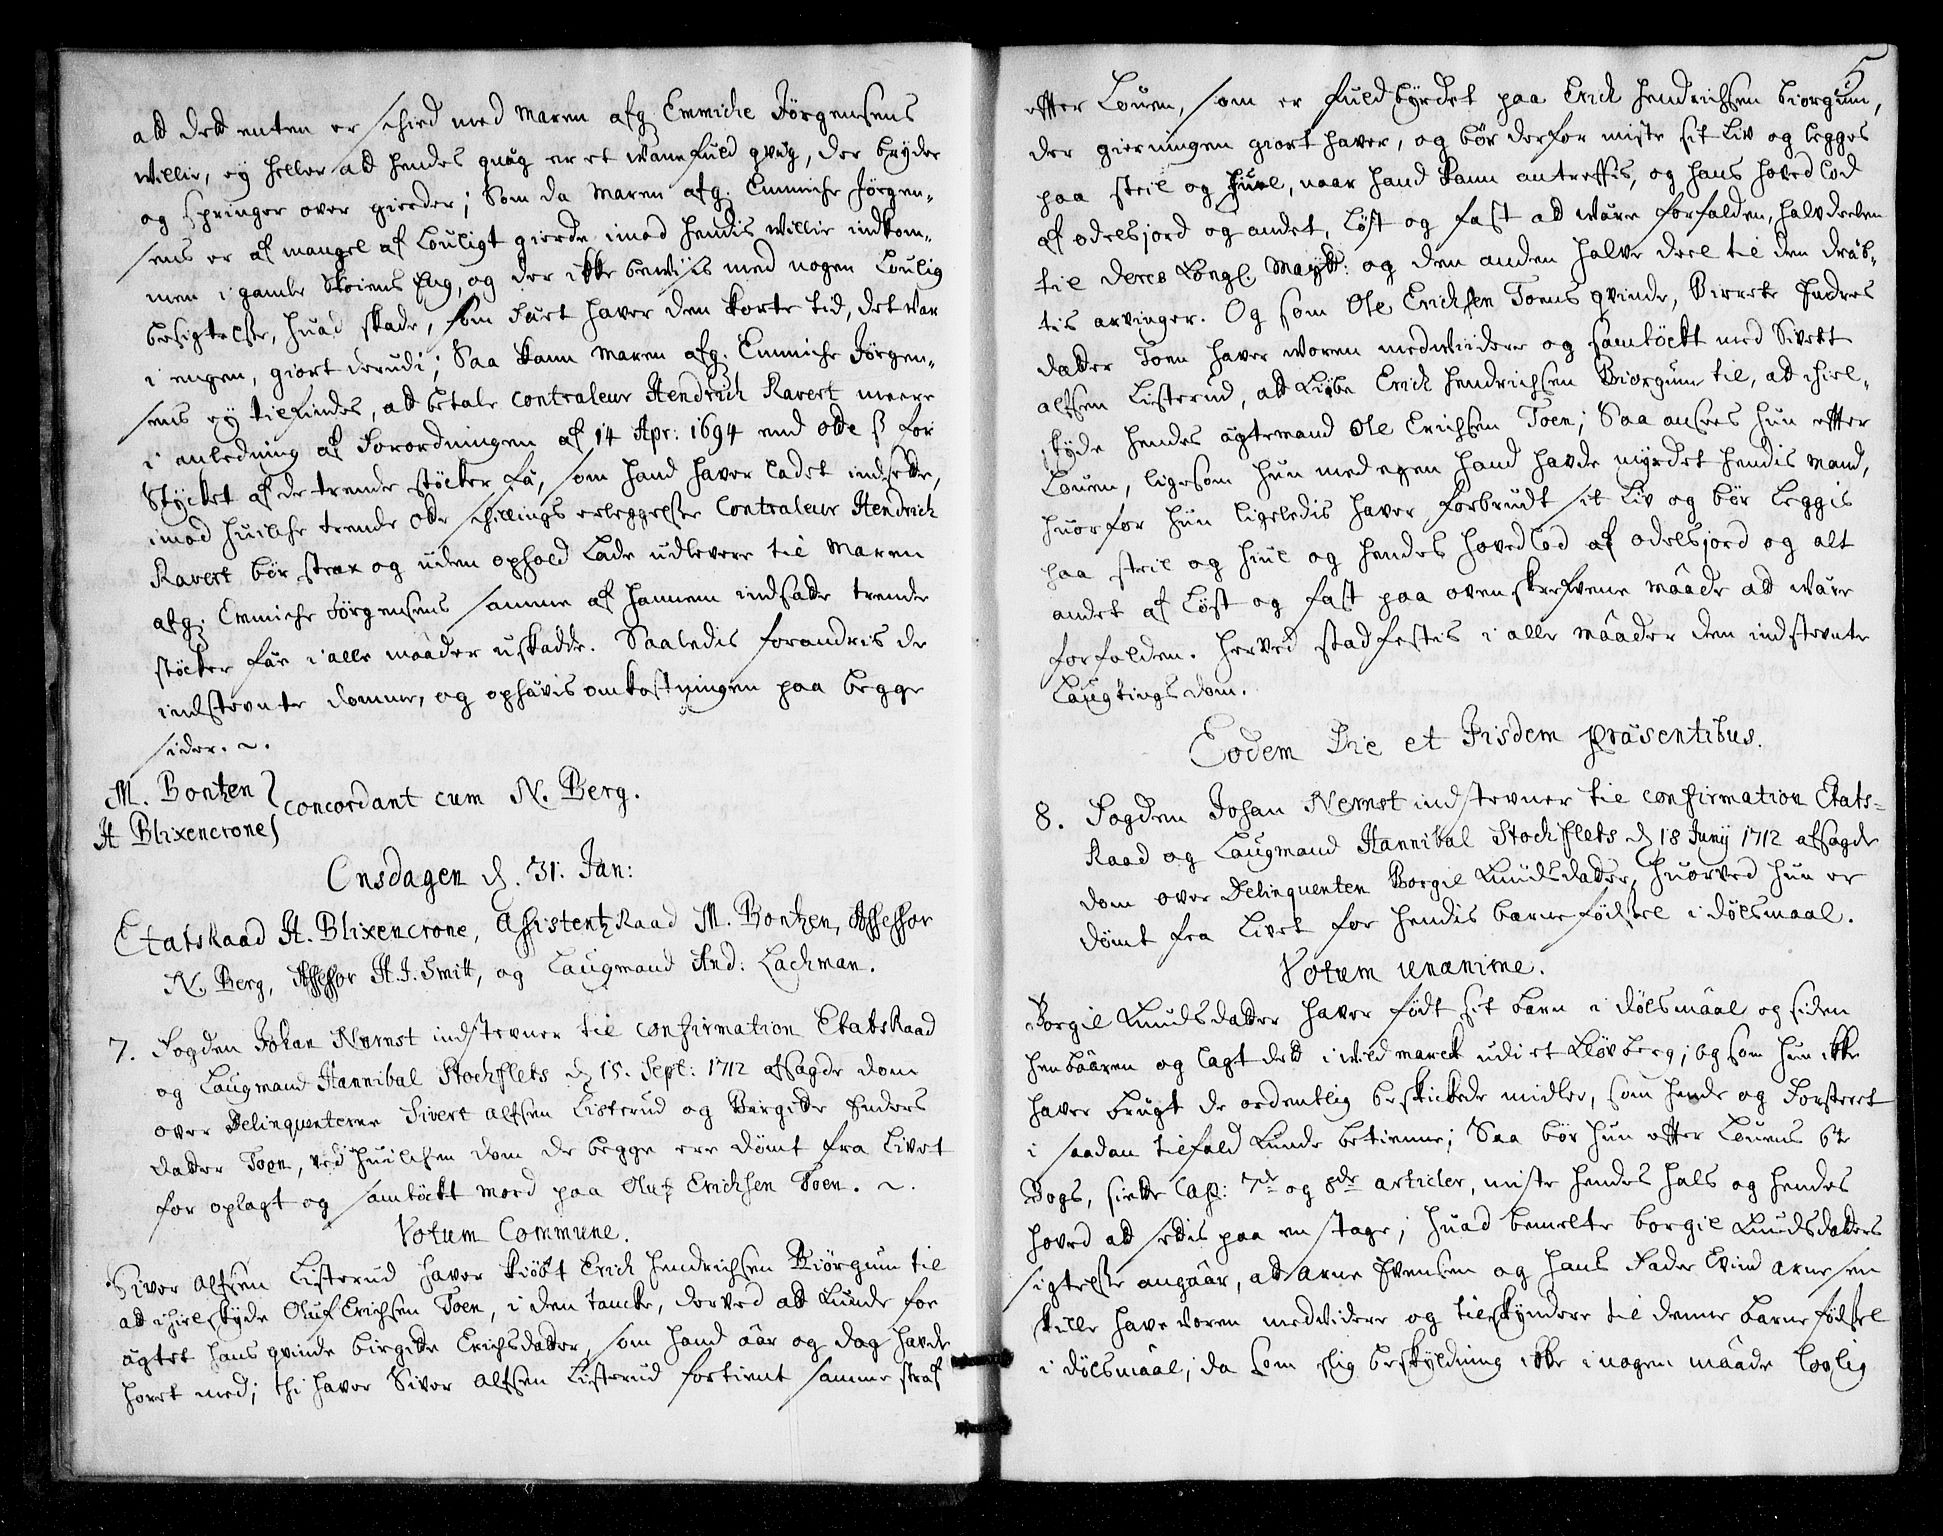 att dett enten er schied med Maren afg. Emmiche Jörgensens
willie, ey heller att hendes quæg er et wanefuld qvæg, der bryder
og springer over gierder; Som da Maren afg. Emmiche Jörgen-
sens er af mangel af Louligt gierde imod hendis willie indkom-
men i gamle Skoiens Eng, og der ikke bewiises med nogen Loulig
besigtelse, huad skade, som faaet haver den korte tid, det var
i engen, giort derudi; Saa kand Maren afg. Emmiche Jörgen-
sens ey tilfindes, att betale Contraleur Hendrich Ravert meere
i anledning af Forordningen af 14 Apr: 1694 end otte ß for
Stycket af de trende stöcker fä, som hand haver ladet indsette,
imod huilche trende otte schillings erleggelse Contraleur Hendrich
Ravert bör strax og uden ophold lade udlevere til Maren
afg. Emmiche Jörgensens samme af hannem indsatte trende
stöcker fäe i alle maader uskadde. Saaledis forandris de
indstevnte domme, og ophävis omkostningen paa begge
sider. ~.
M. Bontzen
H Blixencrone
concordant cum N. Berg.
Onsdagen d. 31. Jan:
EtatsRaad H. Blixencrone, AssistentzRaad M. Bontzen, Assessor
N. Berg, Assessor H. J. Smitt, og Laugmand And: Lachman.
7. Fogden Johan Nemst indstevner til confirmation EtatsRaad
og Laugmand Hannibal Stochflets d. 15. Sept: 1712 afsagde dom
over Delinquenterne Sivert Alfsen Listerud og Birgitte Enders
datter Toen, ved huilchen dom de begge ere dömt fra Livet
for oplagt og samtöckt mord paa Oluf Erichsen Toen. ~.
Votum Commune.
Siver Alfsen Listerud haver kiöbt Erich Hendrichsen Biörgum til
att ihielskyde Oluf Erichsen Toen, i den tancke, derved att kunde for
ägtet hans qvinde birgitte Erichsdatter, som hand aar og dag havde
horet med; thi haver Siver Alfsen Listerud fortient samme straf
5
effter Louen, som er fuldbyrdet paa Erich Hendrichsen biorgum,
der gierningen giort haver, og bör derfor miste sit Liv og legges
paa steil og hiuel, naar hand kann antreffis, og hans hoved lod
af odelsjord og andet, löst og fast att wäre forfalden, halvdeelen
til Deres Kongl. Maytt: og den anden halve deel til den dräb-
tis arvinger. Og som Ole Erichsen Toens qvinde, Birrete Endres
datter Toen haver woren medwiidere og samtöckt med Sivert
alfsen Listerud, att kiöbe Erich Hendrichsen Biorgum til, att ihiel-
skyde hendes ägtemand Ole Erichsen Toen; Saa ansees hun effter
Louen, ligesom hun med egen hand havde myrdet hendis mand,
huorfor hun ligeledis haver forbrudt sit Liv og bör leggis
paa steil og hiul og hendes hovedlod af odelsjord og alt
andet af löst og fast paa ovenskrefvene maade att wäre
forfalden. Herved stadfestis i alle maader den indstevnte
Laugtings dom.
Eodem Die et Iisdem präsentibus.
8. Fogden Johan Nemst indstevner til confirmation Etats-
Raad og Laugmand Hannibal Stochflets d. 18 Juny 1712 afsagde
dom over Delinquenten Borgil Knudsdatter, huorved hun er
dömt fra Livet for hendis barne födssel i dölsmaal.
Votum unanime.
Borgil Knudsdatter haver födt sit barn i dölsmaal og siden
henbaaren og lagt dett i wildmarck udi et Klövberg; og som hun ikke
haver brugt de ordentlig beskickede midler, som hende og Fosteret
i saadan tilfald kunde betienne; Saa bör hun effter Louens 6te
Bogs, siette Cap: 7de og 8de articler, miste hendes hals og hendes
hoved att settis paa en stage; huad bemelte borgil Knudsdatters
sigtelse angaar, att Arne Evensen og hans Fader Evind Arnesen
skulle have woren medvidere og tilskyndere til denne barne födssel
i dölsmaal, da som slig beskyldning ikke i nogen maade lovlig